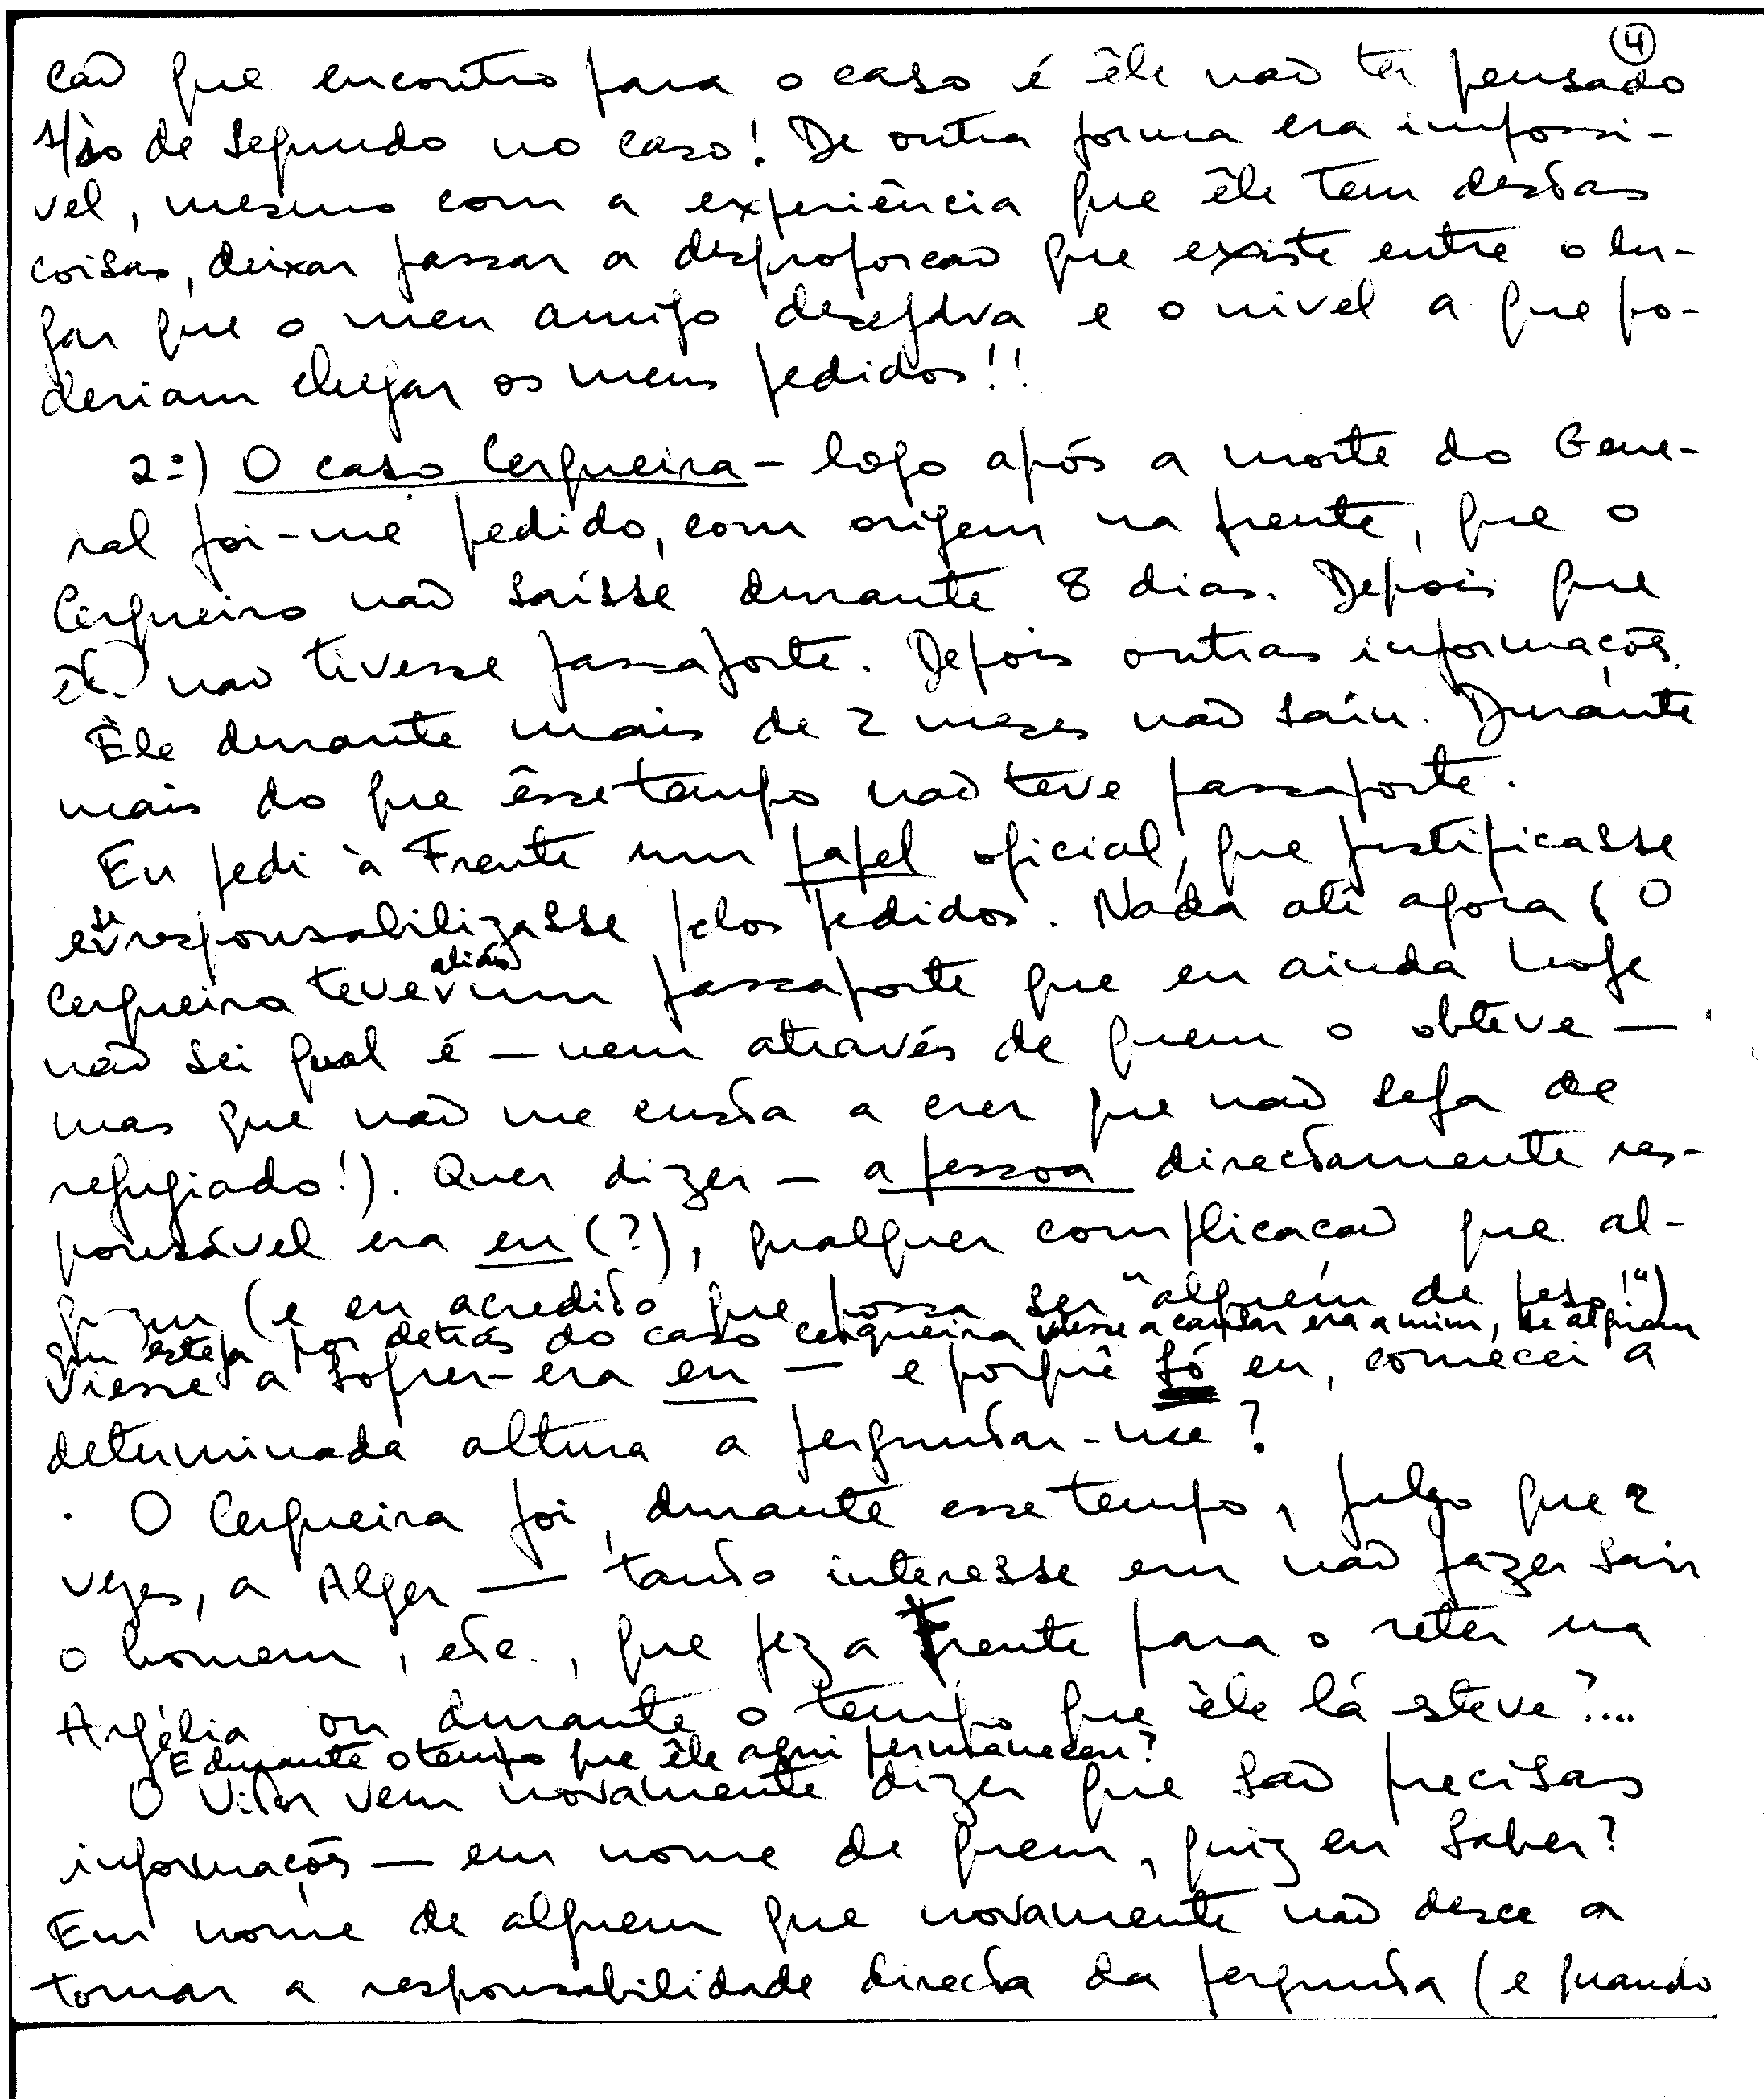 ④
cão que encontro para o caso é êle não ter pensado
1/10 de segundo no caso! De outra forma era impossi-
vel, mesmo com a experiência que êle tem destas
coisas, deixar passar a desproporcão que existe entre o lu-
gar que o meu amigo desejava e o nivel a que po-
deriam chegar os meus pedidos!!
2º) O caso Cerqueira - logo após a morte do Gene-
ral foi-me pedido, com origem na frente, que o
Cerqueiro não saísse durante 8 dias. Depois que
êle não tivesse passaporte. Depois outras informações.
Êle durante mais de 2 meses não saíu. Durante
mais do que êsse tempo não teve passaporte.
Eu pedi à Frente um papel oficial, que justificasse
e se responsabilizasse pelos pedidos. Nada até agora (O
Cerqueira teve aliás um passaporte que eu ainda hoje
não sei qual é - nem através de quem o obteve -
mas que não me custa a crer que não seja de
refugiado!). Quer dizer - a pessoa directamente res-
ponsável era eu (?), qualquer complicacão que al-
guem (e eu acredito que possa ser "alguém de peso!")
que esteja por detrás do caso cerqueira viesse a causar era a mim, se alguem
viesse a sofrer - era eu - e porquê só eu, comecei a
determinada altura a perguntar-me?
O Cerqueira foi, durante esse tempo, julgo que 2
vezes, a Alger - tanto interesse em não fazer sair
o homem, etc., que fez a Frente para o reter na
Argélia ou durante o tempo que êle lá esteve?...
E durante o tempo que êle aqui permaneceu?
O Vitor vem novamente dizer que são precisas
informações - em nome de quem, quiz eu saber?
Em nome de alguem que novamente não desce a
tomar a responsabilidade directa da pergunta (e quando